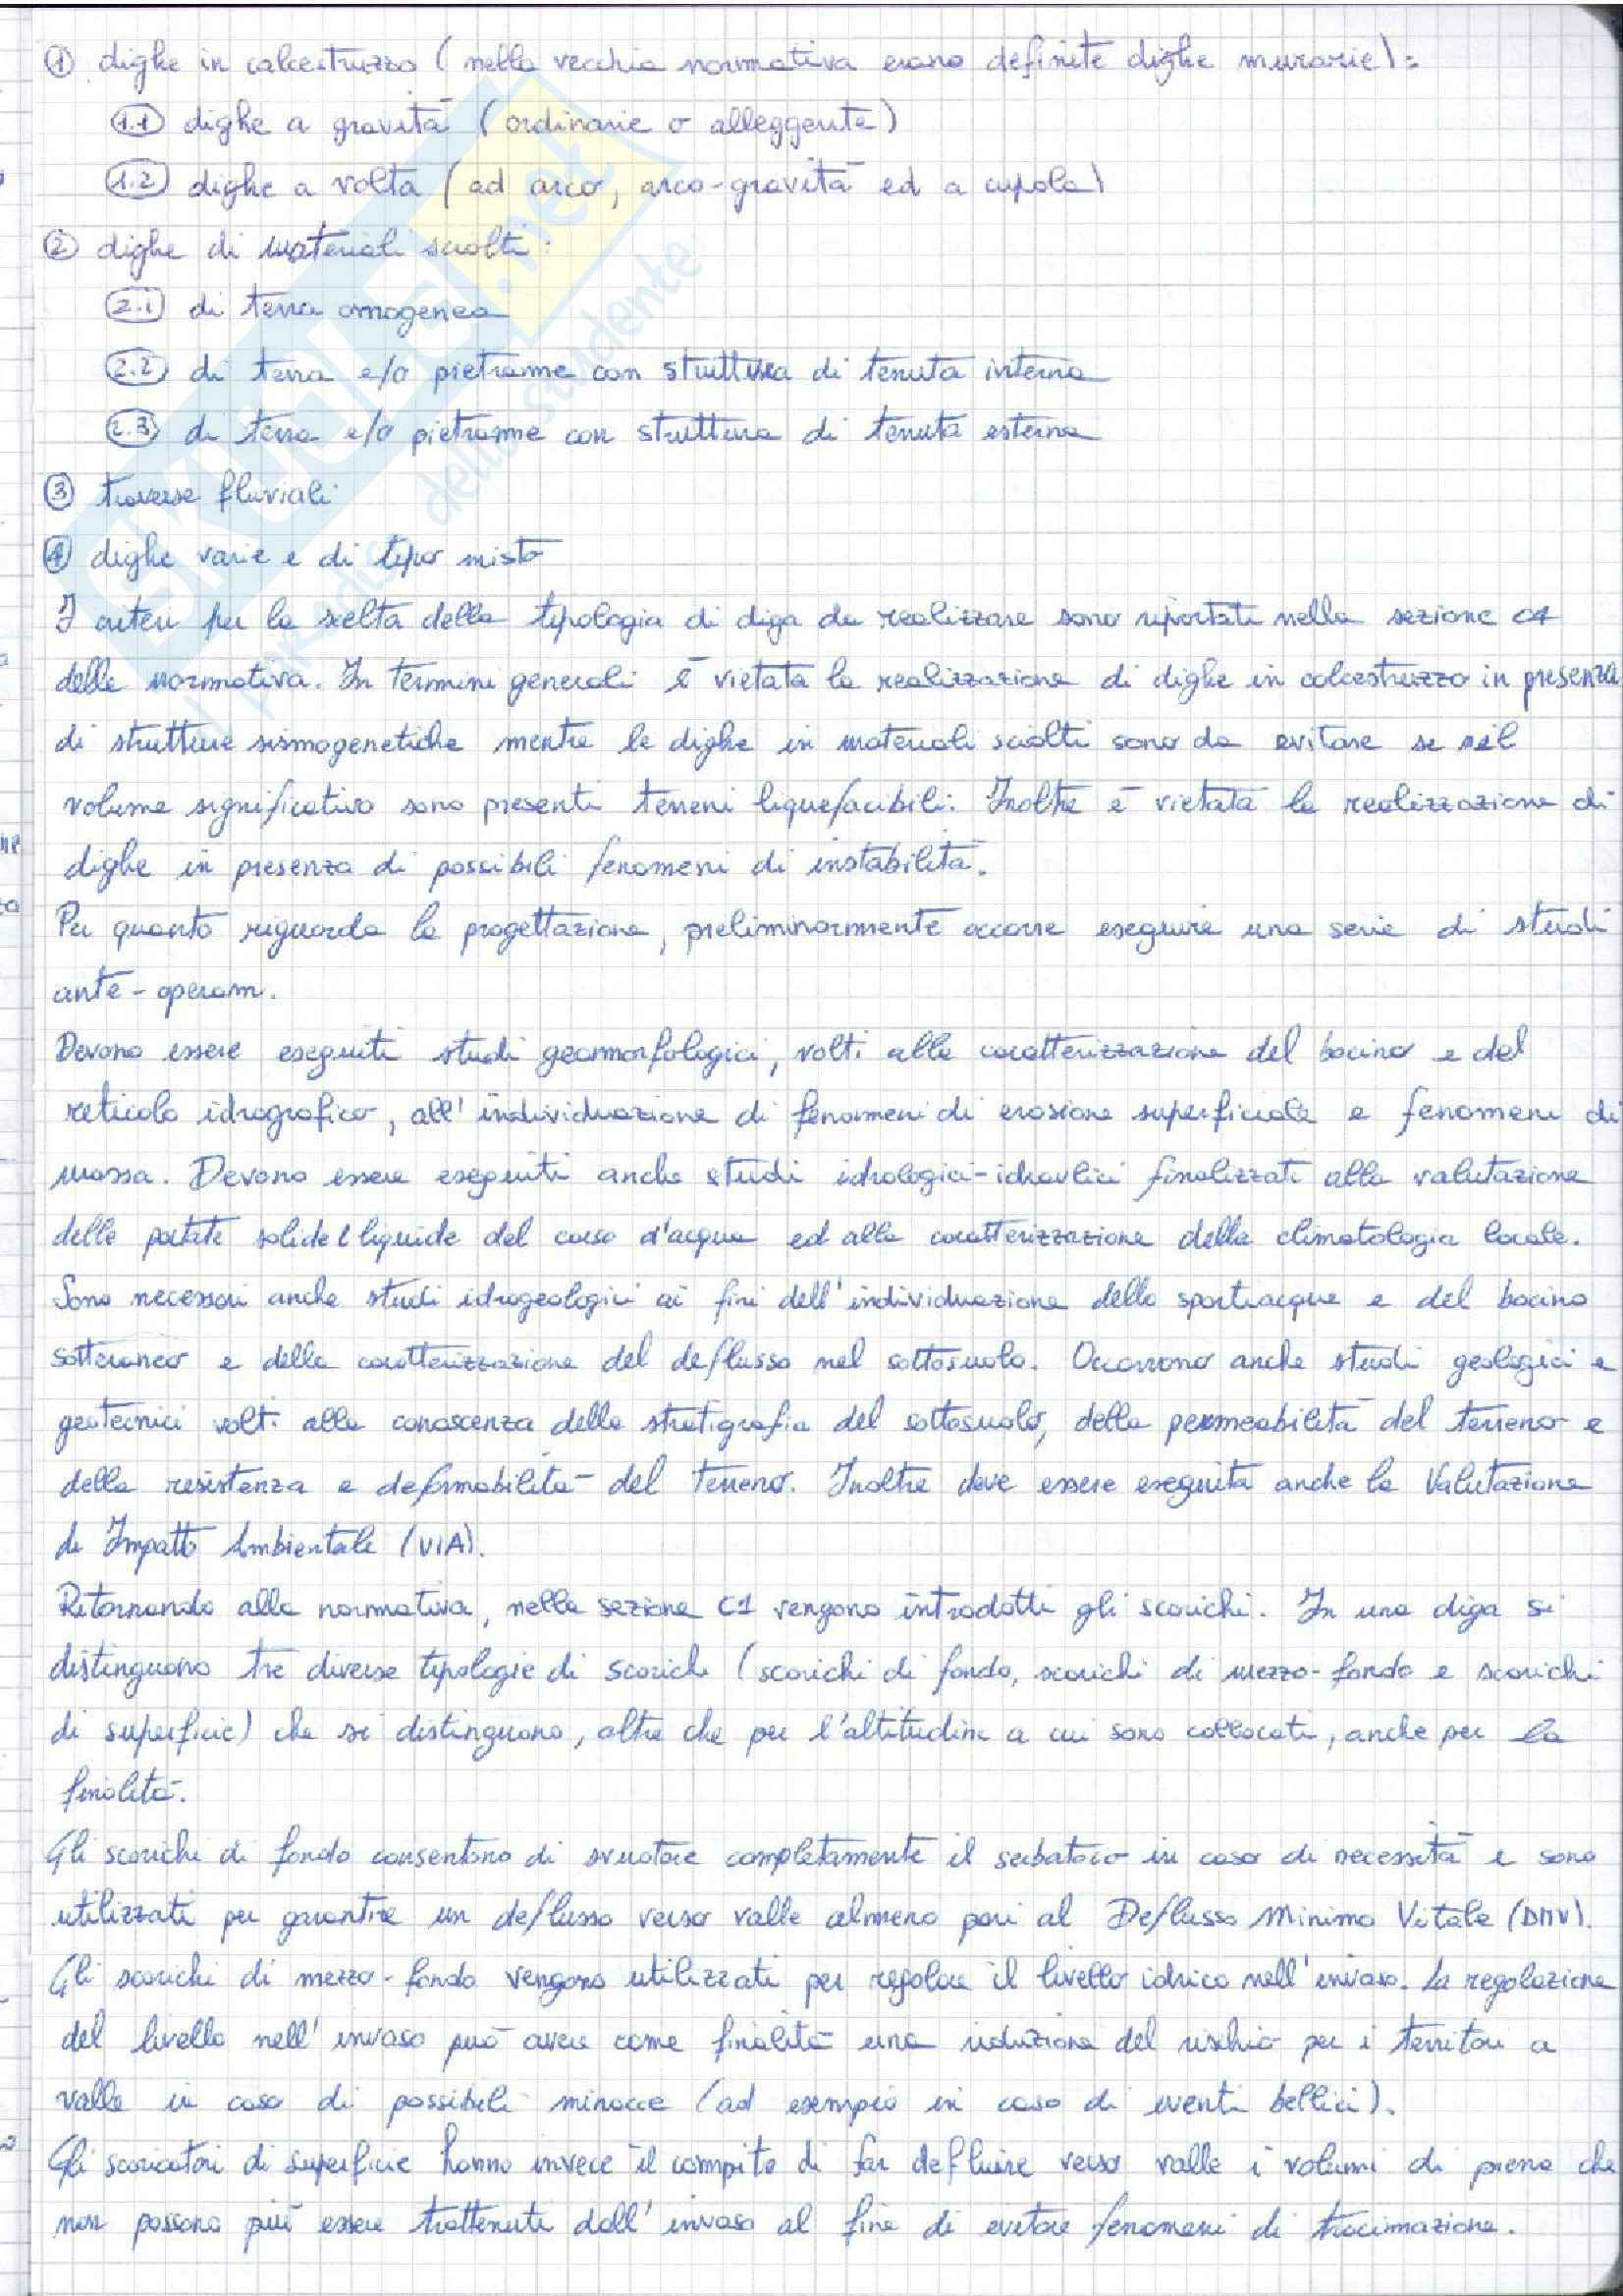 ① dighe in calcestruzzo (nella vecchia normativa erano definite dighe murarie):
1.1 dighe a gravità (ordinarie o alleggerite)
1.2 dighe a volta (ad arco, arco-gravità ed a cupola)
② dighe di materiali sciolti:
2.1 di terra omogenea
2.2 di terra e/o pietrame con struttura di tenuta interna
2.3 di terra e/o pietrame con struttura di tenuta esterna
③ traverse fluviali
④ dighe varie e di tipo misto
I criteri per la scelta della tipologia di diga da realizzare sono riportati nella sezione C4
della normativa. In termini generali è vietata la realizzazione di dighe in calcestruzzo in presenza
di strutture sismogenetiche mentre le dighe in materiali sciolti sono da evitare se nel
volume significativo sono presenti terreni liquefacibili. Inoltre è vietata la realizzazione di
dighe in presenza di possibili fenomeni di instabilità.
Per quanto riguarda la progettazione, preliminarmente occorre eseguire una serie di studi
ante-operam.
Devono essere eseguiti studi geomorfologici, volti alla caratterizzazione del bacino e del
reticolo idrografico, all'individuazione di fenomeni di erosione superficiale e fenomeni di
massa. Devono essere eseguiti anche studi idrologici-idraulici finalizzati alla valutazione
delle portate solide e liquide del corso d'acqua ed alla caratterizzazione della climatologia locale.
Sono necessari anche studi idrogeologici ai fini dell'individuazione dello spartiacque e del bacino
sotterraneo e della caratterizzazione del deflusso nel sottosuolo. Occorrono anche studi geologici e
geotecnici volti alla conoscenza della stratigrafia del sottosuolo, della permeabilità del terreno e
della resistenza e deformabilità del terreno. Inoltre deve essere eseguita anche la Valutazione
di Impatto Ambientale (VIA).
Ritornando alla normativa, nella sezione C1 vengono introdotti gli scarichi. In una diga si
distinguono tre diverse tipologie di scarichi (scarichi di fondo, scarichi di mezzo-fondo e scarichi
di superficie) che si distinguono, oltre che per l'altitudine a cui sono collocati, anche per la
finalità.
Gli scarichi di fondo consentono di svuotare completamente il serbatoio in caso di necessità e sono
utilizzati per garantire un deflusso verso valle almeno pari al Deflusso Minimo Vitale (DMV).
Gli scarichi di mezzo-fondo vengono utilizzati per regolare il livello idrico nell'invaso. La regolazione
del livello nell'invaso può avere come finalità una riduzione del rischio per i territori a
valle in caso di possibili minacce (ad esempio in caso di eventi bellici).
Gli scaricatori di superficie hanno invece il compito di far defluire verso valle i volumi di piena che
non possono più essere trattenuti dall'invaso al fine di evitare fenomeni di tracimazione.
SKUOLA.net
il paradiso dello studente